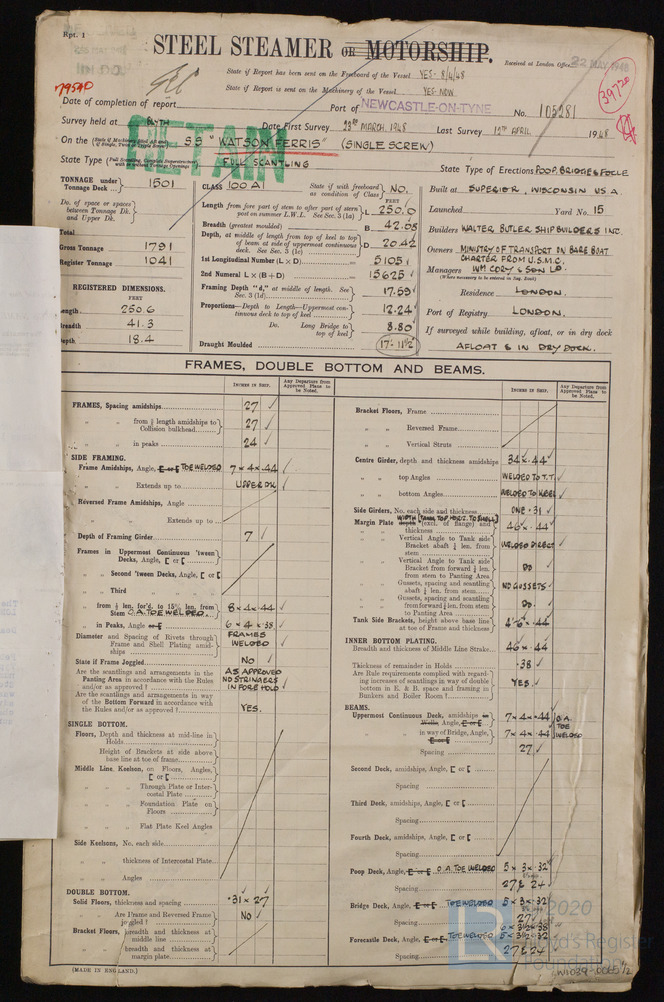 Rpt. 1
STEEL STEAMER OR MOTORSHIP.
Received at London Office 22 MAY 1948
State if Report has been sent on the Freeboard of the Vessel YES - 8/4/48
State if Report is sent on the Machinery of the Vessel YES - NOW
39720
Date of completion of report Port of NEWCASTLE-ON-TYNE No. 105281
Survey held at BLYTH Date First Survey 23RD MARCH, 1948 Last Survey 12TH APRIL 1948
RETAIN
On the SS "WATSON FERRIS" (SINGLE SCREW)
State Type (Full Scantling, Complete Superstructure with or without Tonnage Openings) FULL SCANTLING
State Type of Erections POOP, BRIDGE & FOCLE
TONNAGE under Tonnage Deck ... 1501
Do. of space or spaces between Tonnage Dk. and Upper Dk.
Total
Gross Tonnage 1791
Register Tonnage 1041
REGISTERED DIMENSIONS.
FEET
Length 250.6
Breadth 41.3
Depth 18.4
CLASS 100A1 State if with freeboard as condition of Class NO.
FEET
Length from fore part of stem to after part of stern post on summer L.W.L. See Sec. 3 (1a) L 250.0
Breadth (greatest moulded) B 42.08
Depth, at middle of length from top of keel to top of beam at side of uppermost continuous deck. See Sec. 3 (1c) D 20.42
1st Longitudinal Number (L × D) 5105
2nd Numeral L × (B + D) 15625
Framing Depth "d," at middle of length. See Sec. 3 (1d) 17.59
Proportions—Depth to Length—Uppermost continuous deck to top of keel 12.24
Do. Long Bridge to top of keel 8.80
Draught Moulded 17'-11½"
Built at SUPERIOR, WISCONSIN U.S.A.
Launched Yard No. 15
Builders WALTER BUTLER SHIPBUILDERS INC.
Owners MINISTRY OF TRANSPORT ON BARE BOAT CHARTER FROM U.S.M.C.
Managers WM CORY & SON LD.
(Where necessary to be entered in Reg. Book)
Residence LONDON.
Port of Registry LONDON.
If surveyed while building, afloat, or in dry dock
AFLOAT & IN DRY DOCK.
FRAMES, DOUBLE BOTTOM AND BEAMS.
INCHES IN SHIP. Any Departure from Approved Plans to be Noted.
FRAMES, Spacing amidships 27
" " from ⅗ length amidships to Collision bulkhead 27
" " in peaks 24
SIDE FRAMING.
Frame Amidships, Angle, E or C TOE WELDED 7 × 4 × .44
" " Extends up to UPPER DK
Reversed Frame Amidships, Angle
" " Extends up to
Depth of Framing Girder 7
Frames in Uppermost Continuous 'tween Decks, Angle, [ or [
" " Second 'tween Decks, Angle, [ or [
" " Third
" " from ⅗ len. for'd. to 15% len. from Stem O.A. TOE WELDED 8 × 4 × .44
" " in Peaks, Angle or C 6 × 4 × .38
Diameter and Spacing of Rivets through Frame and Shell Plating amidships FRAMES WELDED
State if Frame Joggled NO
Are the scantlings and arrangements in the Panting Area in accordance with the Rules and/or as approved? AS APPROVED NO STRINGERS IN FORE HOLD
Are the scantlings and arrangements in way of the Bottom Forward in accordance with the Rules and/or as approved? YES.
SINGLE BOTTOM.
Floors, Depth and thickness at mid-line in Holds
" Height of Brackets at side above base line at toe of frame
Middle Line Keelson, on Floors, Angles, [ or [
" " Through Plate or Intercostal Plate
" " Foundation Plate on Floors
" " Flat Plate Keel Angles
Side Keelsons, No. each side
" " thickness of Intercostal Plate
" " Angles
DOUBLE BOTTOM.
Solid Floors, thickness and spacing .31 × 27
" " Are Frame and Reversed Frame joggled? NO
Bracket Floors, breadth and thickness at middle line
" " breadth and thickness at margin plate
(MADE IN ENGLAND.)
INCHES IN SHIP. Any Departure from Approved Plans to be Noted.
Bracket Floors, Frame
" " Reversed Frame
" " Vertical Struts
Centre Girder, depth and thickness amidships 34 × .44
" " top Angles WELDED TO T.T.
" " bottom Angles WELDED TO KEEL
Side Girders, No. each side and thickness ONE .31
Margin Plate depth (excl. of flange) and thickness WIDTH (TANK TOP HORIZ. TO SHELL) 46 × .44
" " Vertical Angle to Tank side Bracket abaft ¼ len. from stem WELDED DIRECT
" " Vertical Angle to Tank side Bracket from forward ¼ len. from stem to Panting Area DO
" " Gussets, spacing and scantling abaft ¼ len. from stem NO GUSSETS
" " Gussets, spacing and scantling from forward ¼ len. from stem to Panting Area DO.
Tank Side Brackets, height above base line at toe of Frame and thickness 4'-6" × .44
INNER BOTTOM PLATING.
Breadth and thickness of Middle Line Strake 46 × .44
Thickness of remainder in Holds .38
Are Rule requirements complied with regarding increases of scantlings in way of double bottom in E. & B. space and framing in Bunkers and Boiler Room? YES.
BEAMS.
Uppermost Continuous Deck, amidships in Wells, Angle, E or C 7 × 4 × .44 O.A. TOE WELDED
" " in way of Bridge, Angle, E or C 7 × 4 × .44
Spacing 27
Second Deck, amidships, Angle, [ or [
Spacing
Third Deck, amidships, Angle, [ or [
Spacing
Fourth Deck, amidships, Angle, [ or [
Spacing
Poop Deck, Angle, E or C O.A. TOE WELDED 5 × 3 × .32
Spacing 27 & 24
Bridge Deck, Angle, E or C TOE WELDED 5 × 3 × .32
Spacing 27
6 × 3½ × .38
Forecastle Deck, Angle, E or C TOE WELDED 5 × 3½ × .32
Spacing 27 & 24
© 2020
Lloyd's Register
Foundation
W1039-0065 1/2